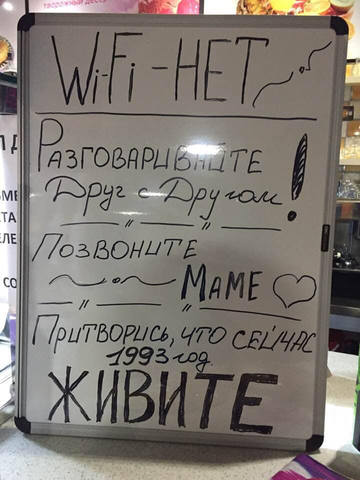 ТВОРОЖНЫЙ ДЕСЕ
Wi-Fi-НЕТ
РАЗГОВАРИВАЙТЕ
Друг с Другом!
ПОЗВОНИТЕ
МАМЕ
Притворись, что сейчас
1993 год.
ЖИВИТЕ